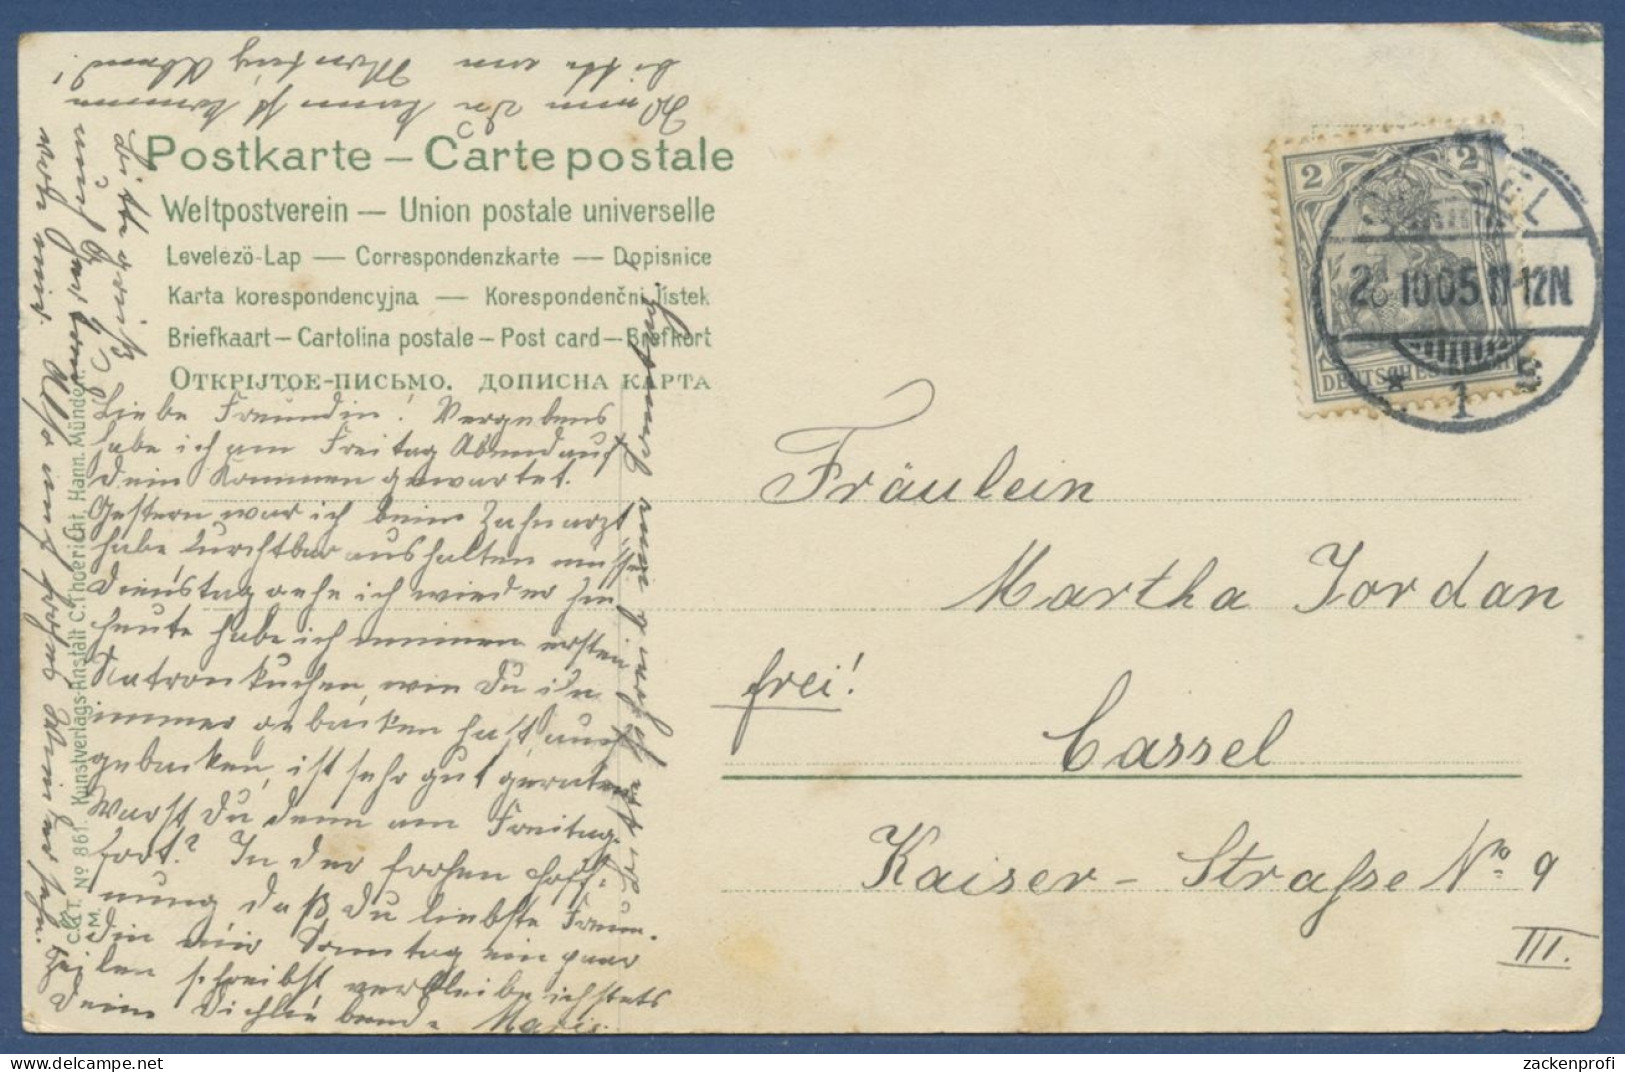 Postkarte – Carte postale
Weltpostverein — Union postale universelle
Levelezö-Lap — Correspondenzkarte — Dopisnice
Karta korespondencyjna — Korespondenčni lístek
Briefkaart – Cartolina postale – Post card – Brefkort
ОТКРІЈТОЕ-ПИСЬМО. ДОПИСНА КАРТА
Liebe Freundin! Vergebens
habe ich am Freitag Abend auf
Dein Kommen gewartet.
Gestern war ich beim Zahnarzt
habe furchtbar aushalten müssen
Dienstag gehe ich wieder hin
heute habe ich meinen ersten
Natronkuchen, wie Du ihn
immer gebacken hast, auch
gebacken, ist sehr gut geraten
Warst Du denn am Freitag
fort? In der frohen Hoff-
nung daß Du liebste Freun-
din mir Sonntag ein paar
Zeilen schreibst verbleibe ich stets
Deine Dichliebende Marie.
Wenn Du kannst komme
bitte am Montag Abend!
Also
C.&T. Nº 861. Kunstverlags-Anstalt C. Thoericht, Hann. Münden.
M.
2 2
DEUTSCHES
10 05 11-12N
* 1
Fräulein
Martha Jordan
frei!
Cassel
Kaiser-Straße No. 9
III.
zackenprofi